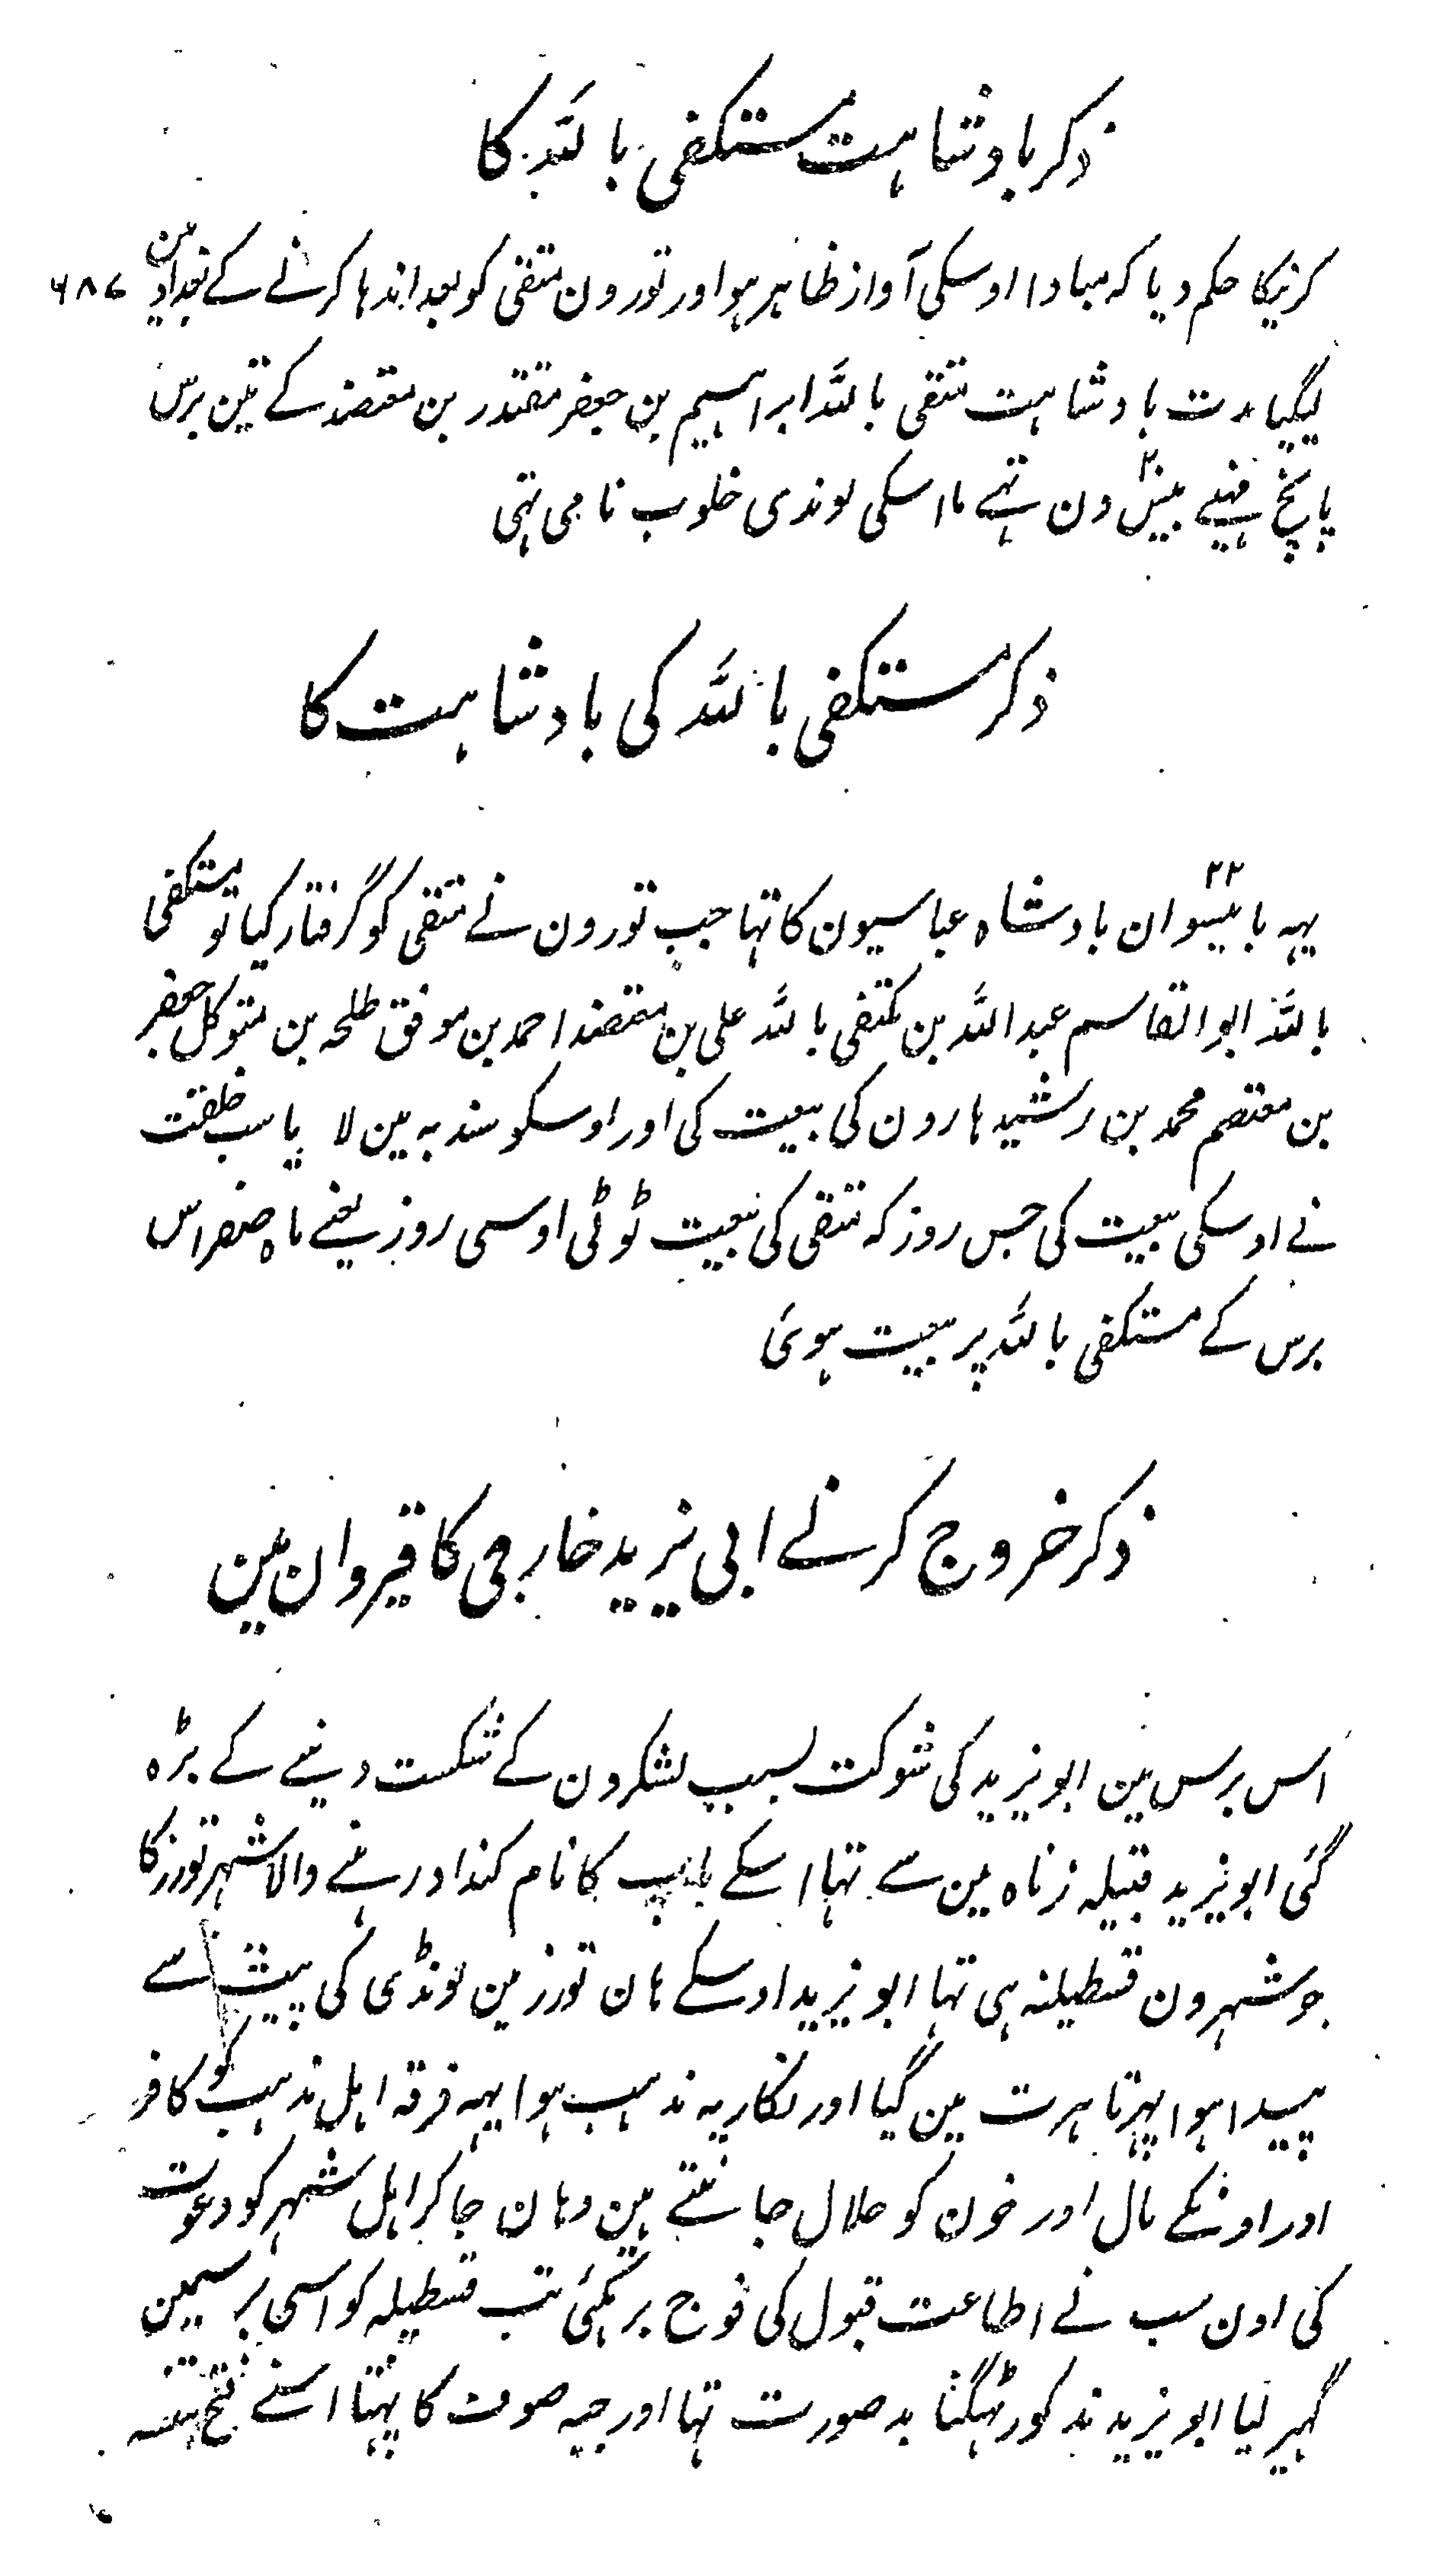 ذکر بادشاہت مستکفی باللہ کا
کرنیکا حکم دیا کہ مبادا اوسکی آواز ظاہر ہو اور تورون متقی کو بعد اندہا کرنے کے بغداد مین ۶۸۷
لیگیا مدت بادشاہت متقی باللہ ابراہیم بن جعفر مقتدر بن معتضد کے تین برس
پانچ مہینے بیس ۲۰ دن تہے ما اسکی لوندی خلوب نامی تہی
ذکر مستکفی باللہ کی بادشاہت کا
یہہ بائیسوان ۲۲ بادشاہ عباسیون کا تہا جب تورون نے متقی کو گرفتار کیا تو مستکفی
باللہ ابو القاسم عبد اللہ بن مکتفی باللہ علی بن معتضد احمد بن موفق طلحہ بن متوکل جعفر
بن معتصم محمد بن رشید ہارون کی بیعت کی اور اوسکو سندیہ مین لا یا سب خلقت
نے اوسکی بیعت کی جس روز کہ متقی کی بیعت ٹوٹی اوسی روز یعنے ماہ صفر اس
برس کے مستکفی باللہ پر بیعت ہوئی
ذکر خروج کرنے ابی یزید خارجی کا قیروان مین
اس برس مین ابو یزید کی شوکت بسبب لشکرون کے شکست دینے کے بڑہ
گئی ابو یزید قبیلہ زناہ مین سے تہا اسکے باپ کا نام کنداد رہنے والا شہر توزر کا
جو شہرون قسطیلنہ ہی تہا ابو یزید اوسکے ہان توزر مین لونڈی کی پیٹ سے
پیدا ہوا پہر تاہرت مین گیا اور نکاریہ مذہب ہوا یہہ فرقہ اہل مذہب کو کافر
اور اونکے مال اور خون کو حلال جانتے ہین وہان جا کر اہل شہر کو دعوت
کی اون سب نے اطاعت قبول کی فوج بڑہگئی تب قسطیلہ کو اسی برسمین
گہیر لیا ابو یزید مذکور ٹہگنا بد صورت تہا اور جبہ صوف کا پہنتا اسنے فتح تبسہ